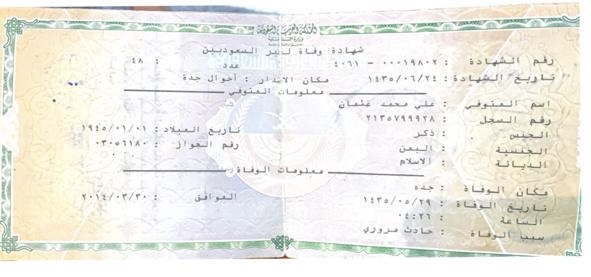 المملكة العربية السعودية
شهادة وفاة لغير السعوديين
رقم الشهادة : ٠٠٠١٩٨٠٢ - ٤٠٦١ عدد : ٤٨
تاريخ الشهادة : ١٤٣٥/٠٦/٢٤ مكان الاصدار : أحوال جدة
معلومات المتوفي
اسم المتوفي : علي محمد عثمان
رقم السجل : ٢١٣٥٧٩٩٩٢٨
الجنس : ذكر تاريخ الميلاد : ١٩٤٥/٠١/٠١
الجنسية : اليمن رقم الجواز : ٠٣٠٥٦١٨٠
الديانة : الاسلام
معلومات الوفاة
مكان الوفاة : جده
تاريخ الوفاة : ١٤٣٥/٠٥/٢٩ الموافق : ٢٠١٤/٠٣/٣٠
الساعة : ٠٤:٢٦
سبب الوفاة : حادث مروري